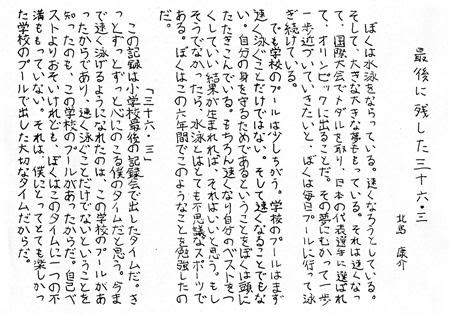 最後に残した三十六・三
北島 康介
ぼくは水泳をならっている。速くなろうとしている。
そして、大きな大きな夢をもっている。それは速くなっ
て、国際大会でメダルを取り、日本の代表選手に選ばれ
て、オリンピックに出ることだ。その夢にむかって一歩
一歩近づいていきたいと、ぼくは毎日プールに行って泳
ぎ続けている。
でも学校のプールは少しちがう。学校のプールはまず
速く泳ぐことだけではない。そして速くなることでもな
い。自分の身を守るためであるということをぼくは頭に
たたきこんでいる。もちろん速くなり自分のベストをつ
くしていい結果が生まれば、それはいいと思う。もし
そうでなかったら、水泳とはとても不思議なスポーツで
ある。ぼくはこの六年間でこのようなことを勉強したの
だ。
「三十六・三」
この記録は小学校最後の記録会で出したタイムだ。き
っとずっとずっと心にのこる僕のタイムだと思う。今ま
で速く泳げるようになれたのは、この学校のプールがあ
ったからであり、速く泳ぐことだけでないということを
知ったのも、この学校のプールがあったからだ。自己ベ
ストよりおそいけれども、ぼくはこのタイムに一つの不
満ももっていない。それは、僕にとってとても楽しかっ
た学校のプールで出した大切なタイムだからだ。